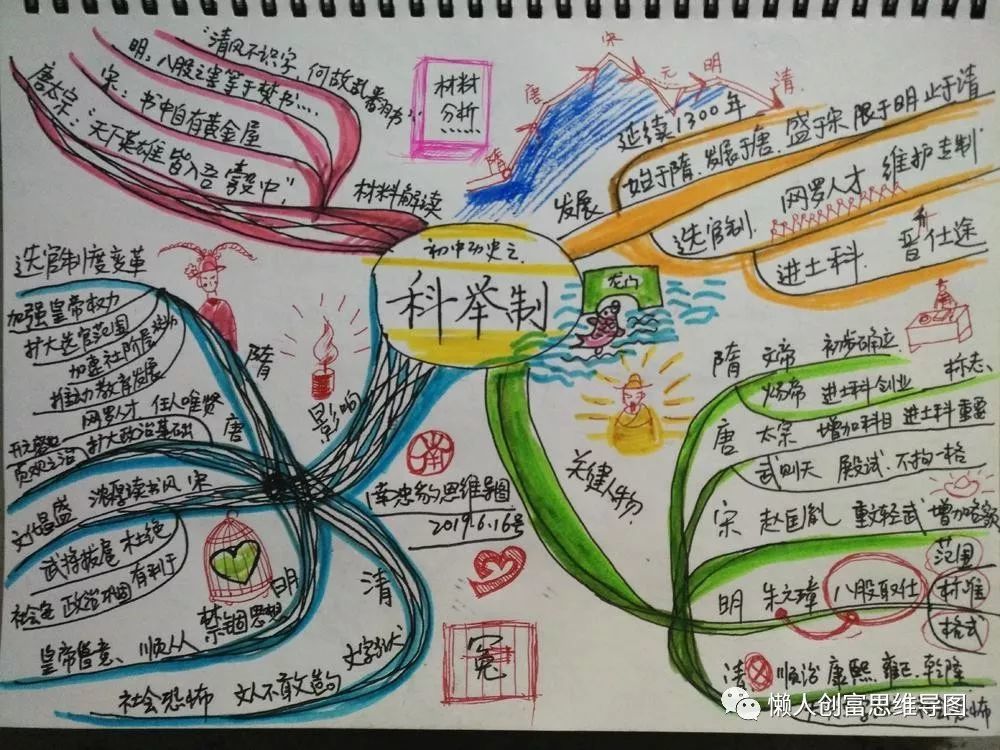 初中历史之
科举制
材料解读
"清风不识字,何故乱翻书"
明:八股之害等于焚书…
宋:书中自有黄金屋
唐太宗:"天下英雄皆入吾彀中"
材料
分析
隋
唐
宋
元
明
清
发展
延续1300年
始于隋.发展于唐.盛于宋 限于明 止于清
选官制.
网罗人才
维护专制
进士科
晋仕途
龙门
关键人物
隋
文帝
初步确立
炀帝
进士科创业
标志、
唐
太宗
增加科目
进士科重要
武则天
殿试.不拘一格
宋
赵匡胤
重文轻武
增加名额
明
朱元璋
八股取仕
范围
标准
格式
清
顺治 康熙.雍正.乾隆
影响
选官制度变革
隋
加强皇帝权力
扩大选官范围
加速社阶层流动
推动教育发展
唐
网罗人才 任人唯贤
扩大政治基础
开元盛世
贞观之治
宋
浓厚读书风
文昌盛
武将拔扈 杜绝
社会定 政治巩固有利于
明
禁锢思想
皇帝旨意、顺从人
清
文字狱
社会恐怖 文人不敢造次
思维导图
2019.6.16号
冤
懒人创富思维导图